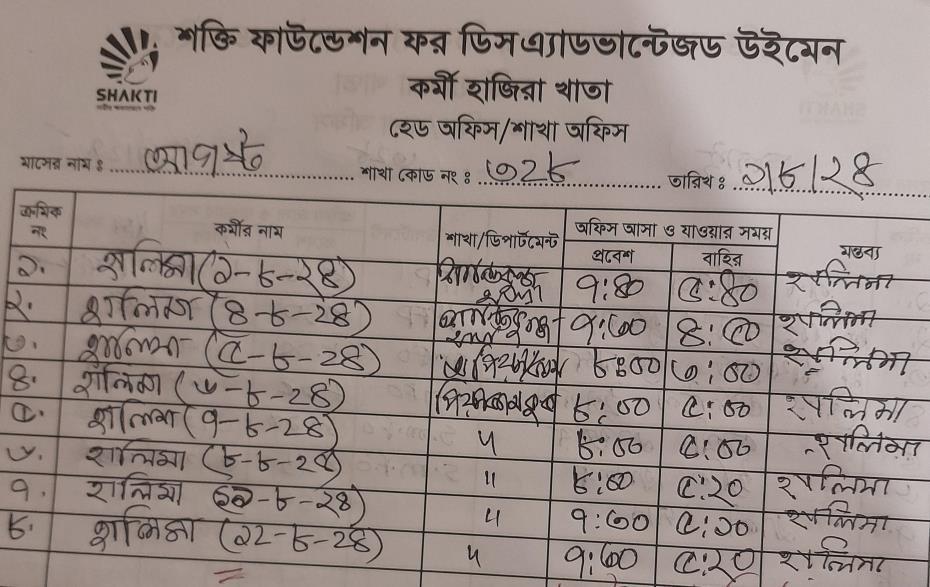 শক্তি ফাউন্ডেশন ফর ডিসএ্যাডভান্টেজড উইমেন
SHAKTI
কর্মী হাজিরা খাতা
হেড অফিস/শাখা অফিস
মাসের নাম : আগষ্ট শাখা কোড নং : ৩২৮ তারিখ : ১/৮/২৪
ক্রমিক নং কর্মীর নাম শাখা/ডিপার্টমেন্ট অফিস আসা ও যাওয়ার সময় মন্তব্য
প্রবেশ বাহির
১. হালিমা (১-৮-২৪) ৭:৪০ ৫:৪০ হালিমা
২. হালিমা (৪-৮-২৪) ৭:৩০ ৪:৫০ হালিমা
৩. হালিমা (৫-৮-২৪) ৮:০০ ৩:০০ হালিমা
৪. হালিমা (৬-৮-২৪) ৮:০০ ৫:০০ হালিমা
৫. হালিমা (৭-৮-২৪) " ৮:০০ ৫:০০ হালিমা
৬. হালিমা (৮-৮-২৪) " ৮:০০ ৫:২০ হালিমা
৭. হালিমা (১১-৮-২৪) " ৭:৩০ ৫:১০ হালিমা
৮. হালিমা (১২-৮-২৪) " ৭:৩০ ৫:২০ হালিমা